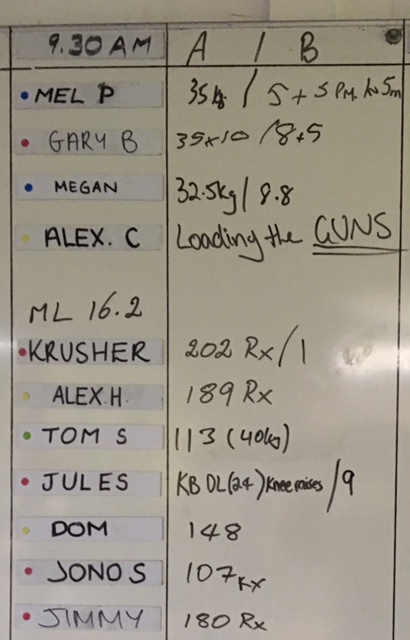 9.30 AM A / B
MEL P 35kg / 5 + 5 PM. 5m
GARY B 35x10 / 8+5
MEGAN 32.5kg / 8.8
ALEX. C Loading the GUNS
ML 16.2
KRUSHER 202 Rx / 1
ALEX.H. 189 Rx
TOM S 113 (40kg)
JULES KB DL (24) Knee raises / 9
DOM 148
JONO S 107 Rx
JIMMY 180 Rx